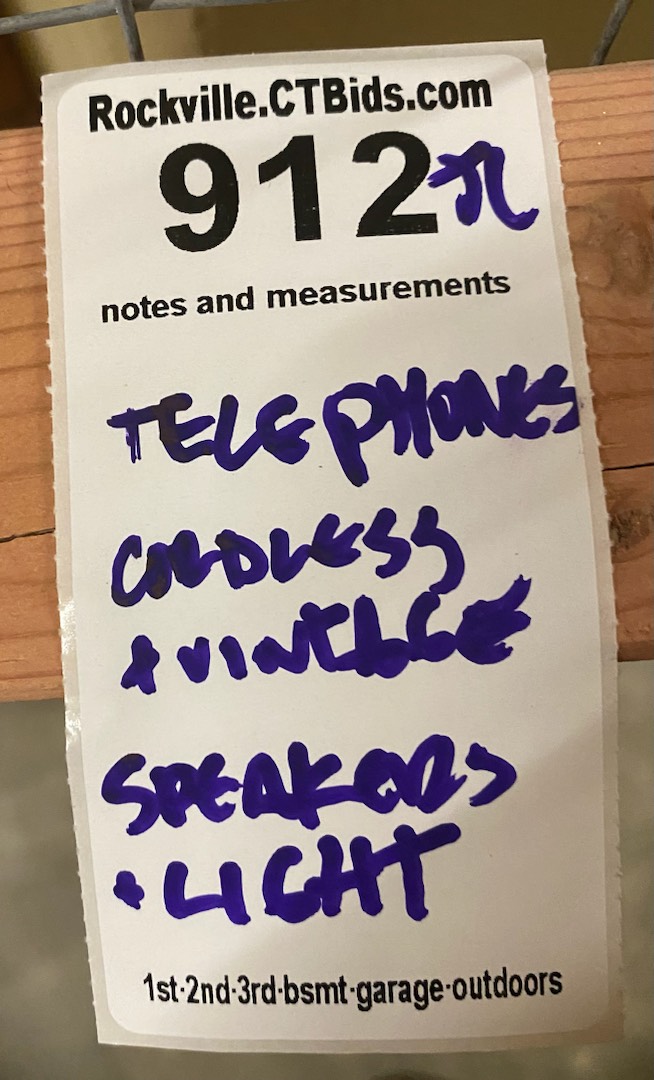 Rockville.CTBids.com
912π
notes and measurements
TELEPHONES
CORDLESS
+ VINTAGE
SPEAKERS
+ LIGHT
1st-2nd-3rd-bsmt-garage-outdoors